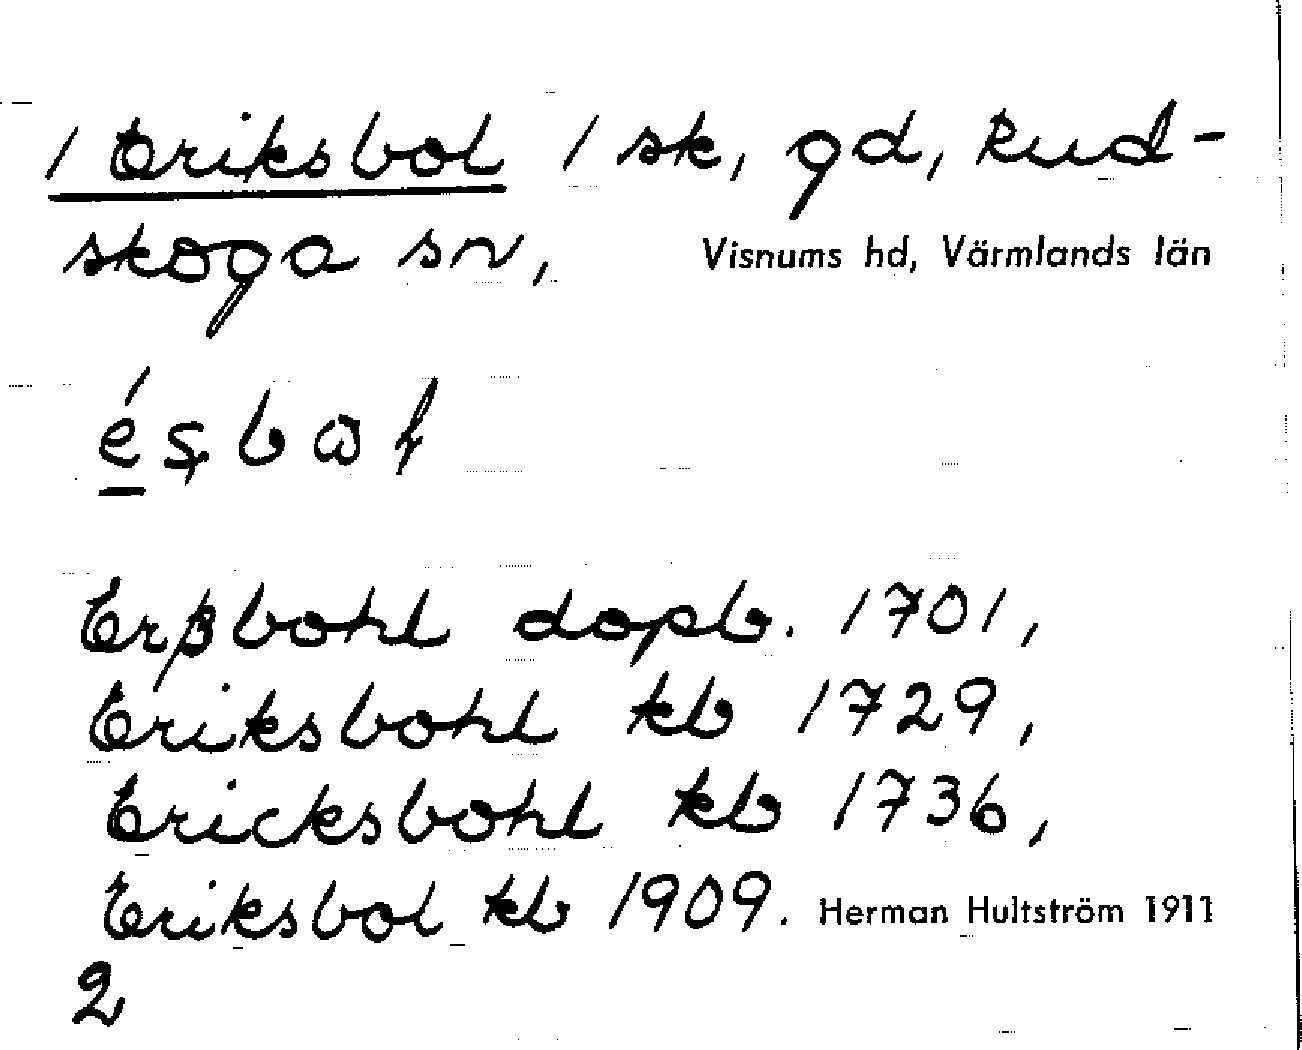 / Eriksbol / sk, gd, Rud-
skoga sn, Visnums hd, Värmlands län
Erßbohl dopb. 1701,
Eriksbohl kb 1729,
Ericksbohl kb 1736,
Eriksbol kb 1909. Herman Hultström 1911
2